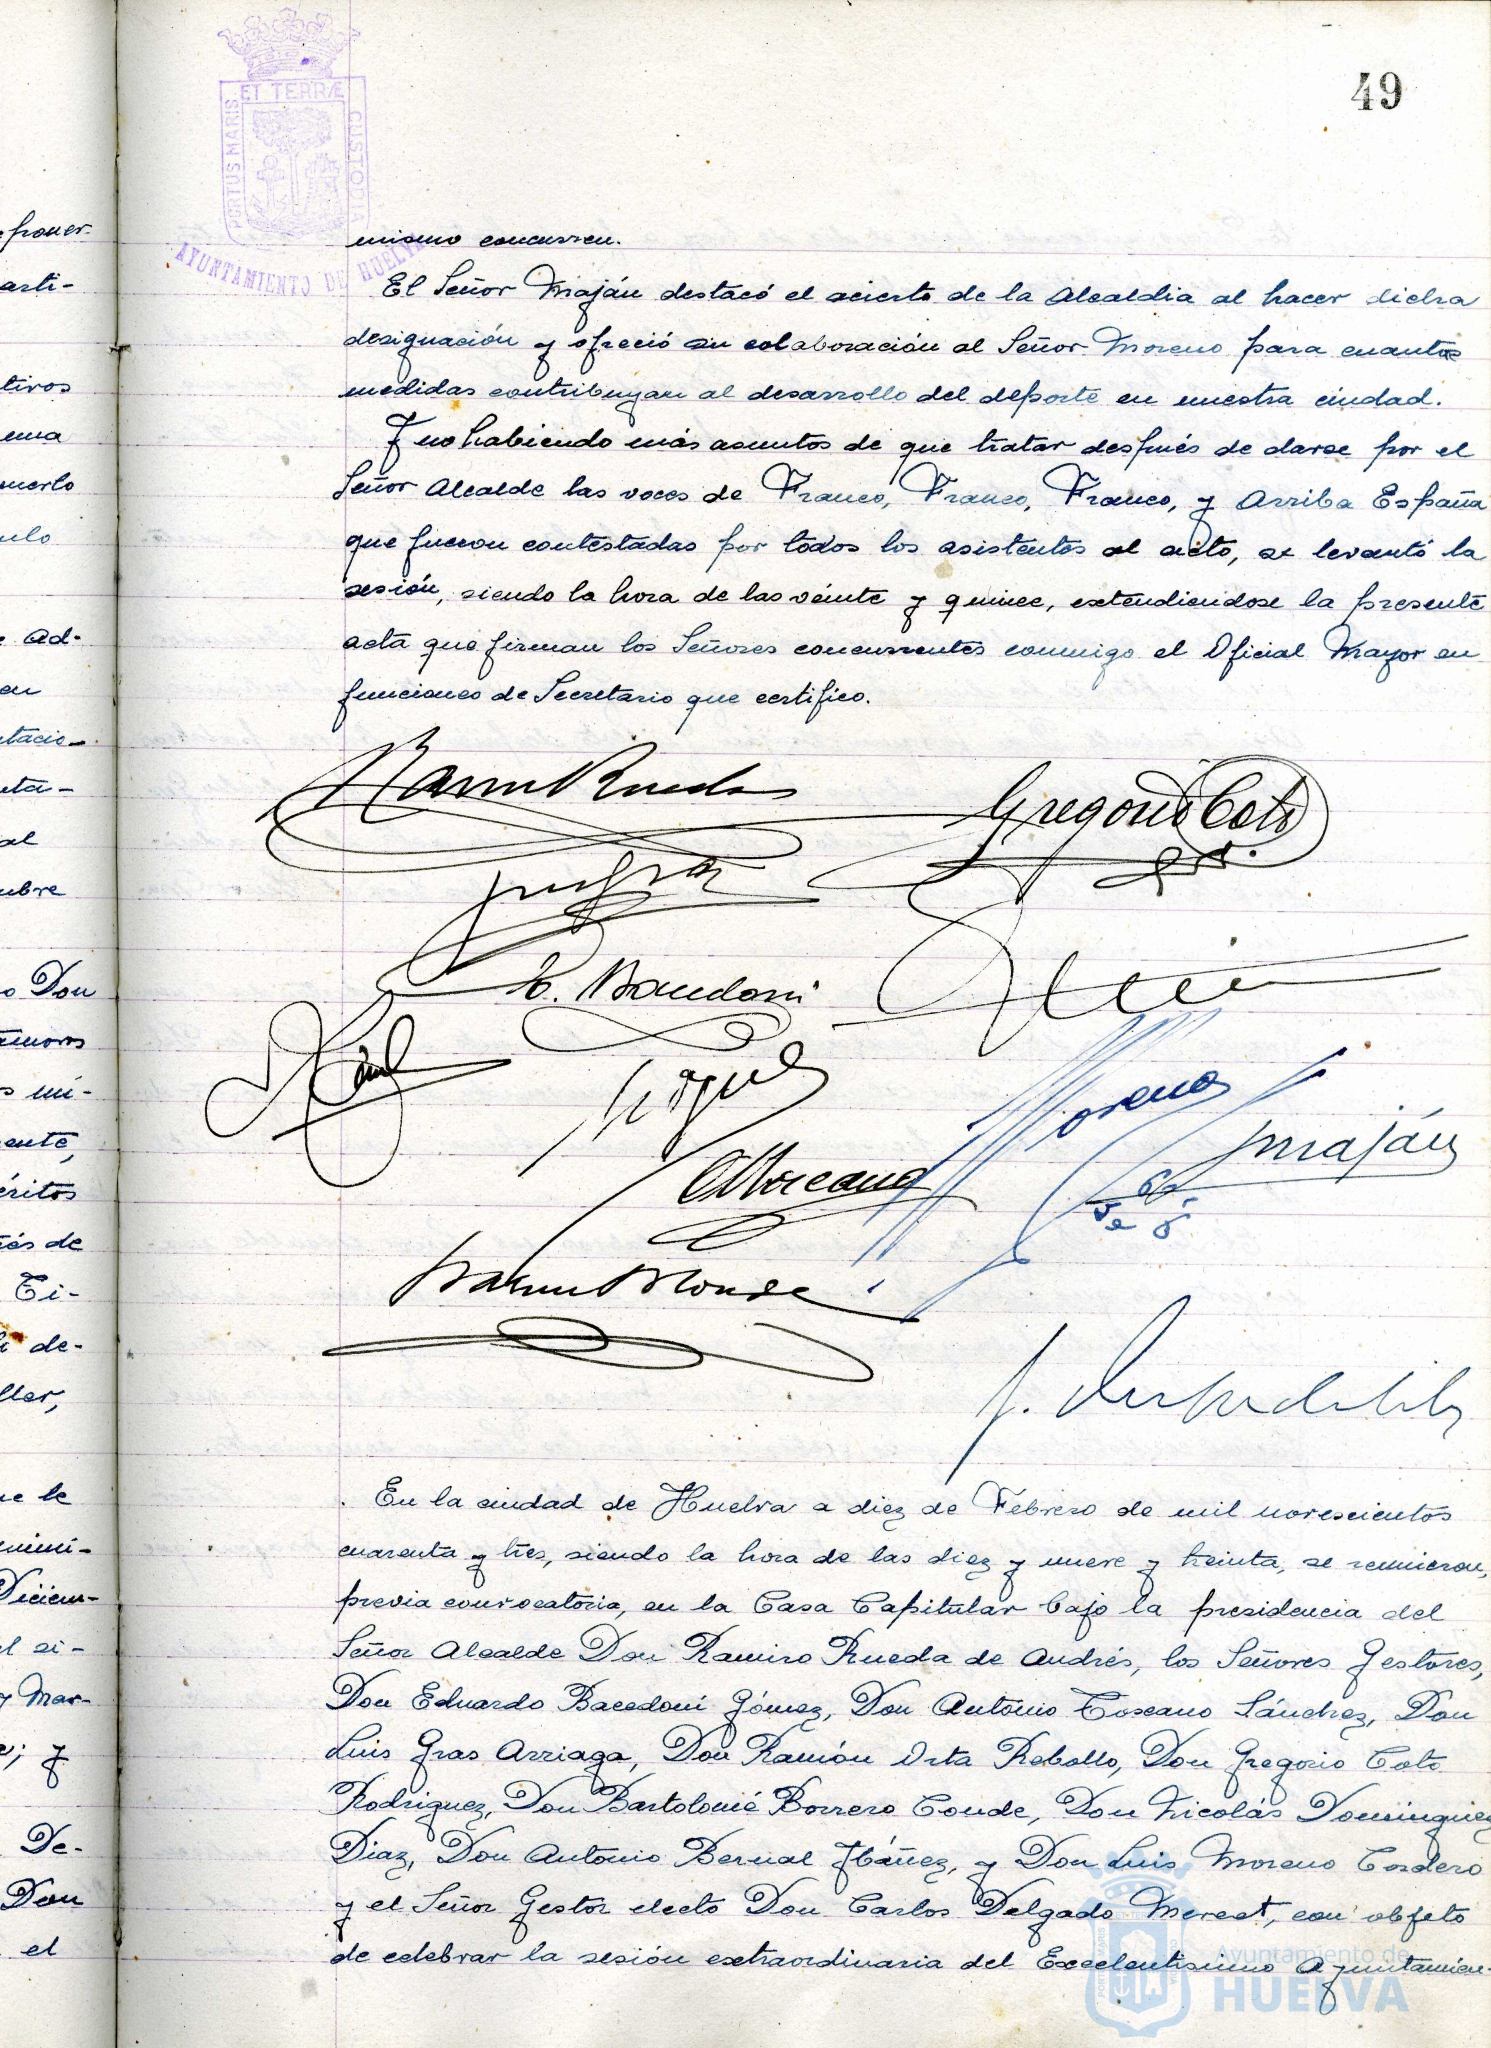 49
ET TERRÆ
PORTUS MARIS
CUSTODIA
AYUNTAMIENTO DE HUELVA
mismo concurren.
El Señor Maján destacó el acierto de la Alcaldia al hacer dicha
designación y ofreció su colaboración al Señor Moreno para cuantas
medidas contribuyan al desarrollo del deporte en nuestra ciudad.
Y no habiendo más asuntos de que tratar después de darse por el
Señor Alcalde las voces de Franco, Franco, Franco, y Arriba España
que fueron contestadas por todos los asistentes al acto, se levantó la
sesión, siendo la hora de las veinte y quince, extendiendose la presente
acta que firman los Señores concurrentes conmigo el Oficial Mayor en
funciones de Secretario que certifico.
Gregorio Coto
Moreno
Maján
En la ciudad de Huelva a diez de Febrero de mil novescientos
cuarenta y tres, siendo la hora de las diez y nueve y treinta, se reunieron,
previa convocatoria, en la Casa Capitular bajo la presidencia del
Señor Alcalde Don Ramiro Rueda de Andrés, los Señores Gestores,
Don Eduardo Bacedoni Gómez, Don Antonio Toscano Sánchez, Don
Luis Gras Arriaga, Don Ramón Orta Rebollo, Don Gregorio Coto
Rodriguez, Don Bartolomé Borrero Conde, Don Nicolás Dominguez
Diaz, Don Antonio Bernal Ibáñez, y Don Luis Moreno Cordero
y el Señor Gestor electo Don Carlos Delgado Merest, con objeto
de celebrar la sesión extraordinaria del Excelentisimo Ayuntamien-
Ayuntamiento de
HUELVA